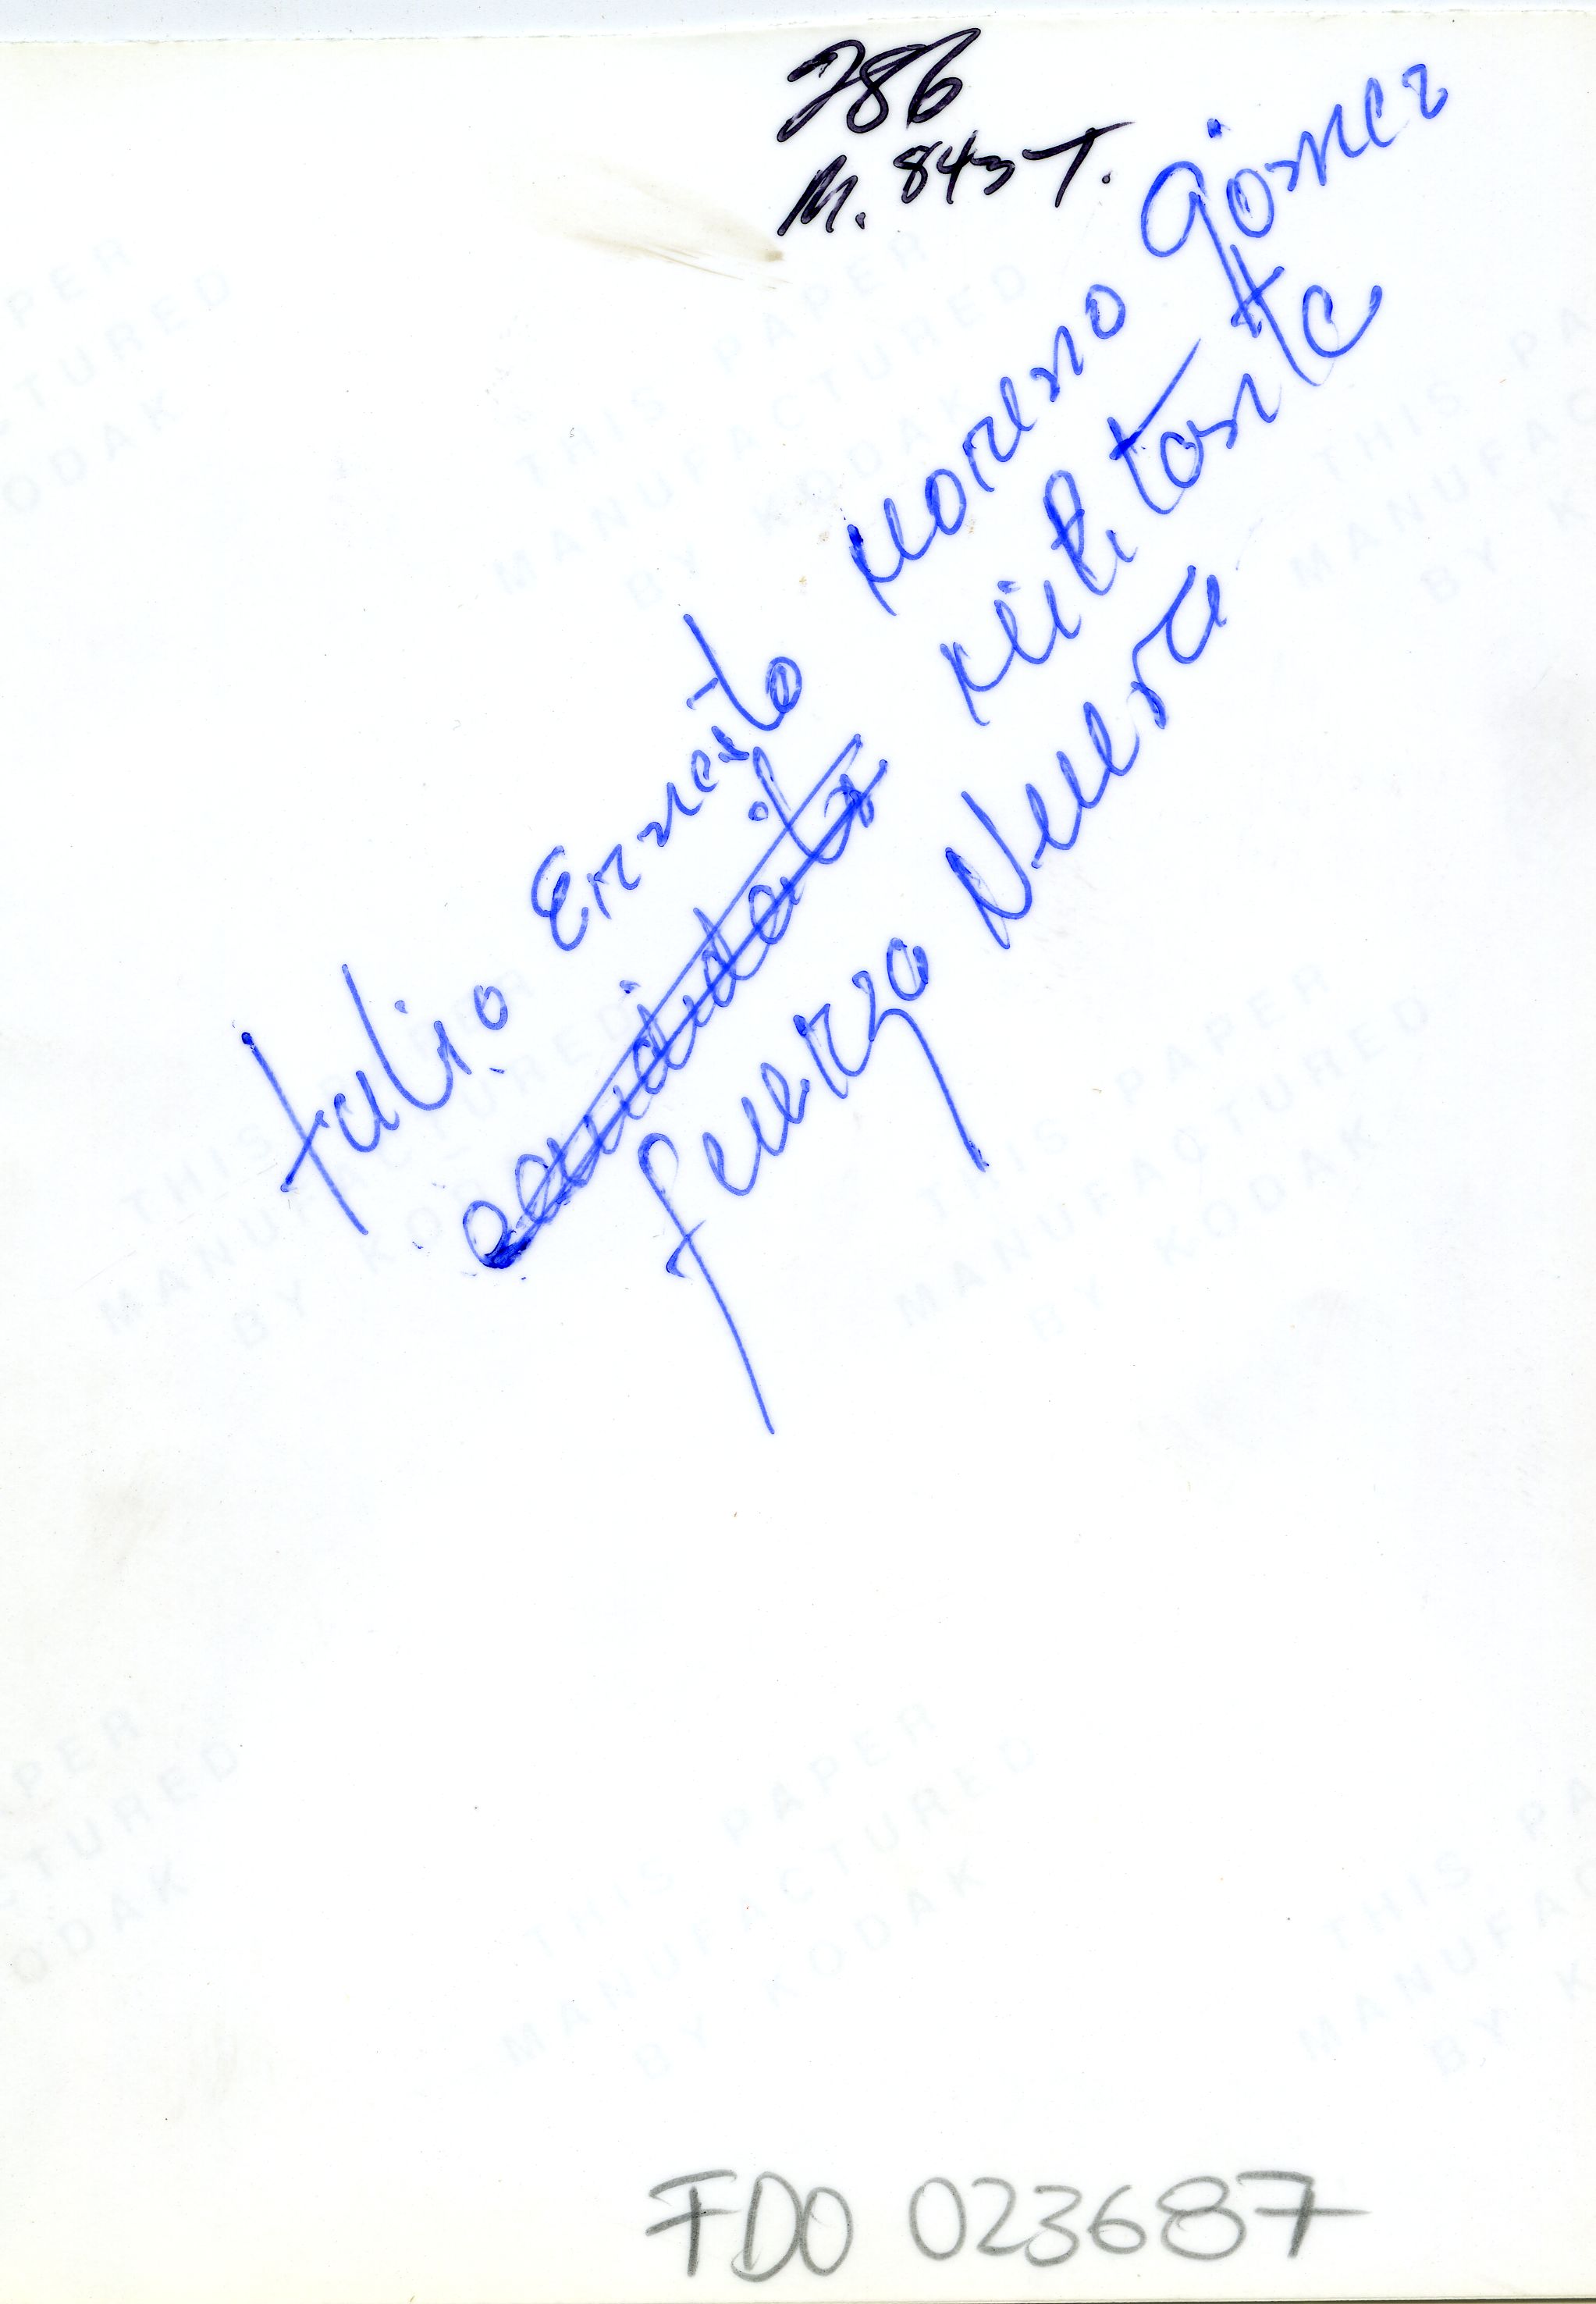 286
M. 843 T.
tulio Ernesto Moreno Gómez
candidato Militante
fuerza Nueva
THIS PAPER
MANUFACTURED
BY KODAK
FDO 023687